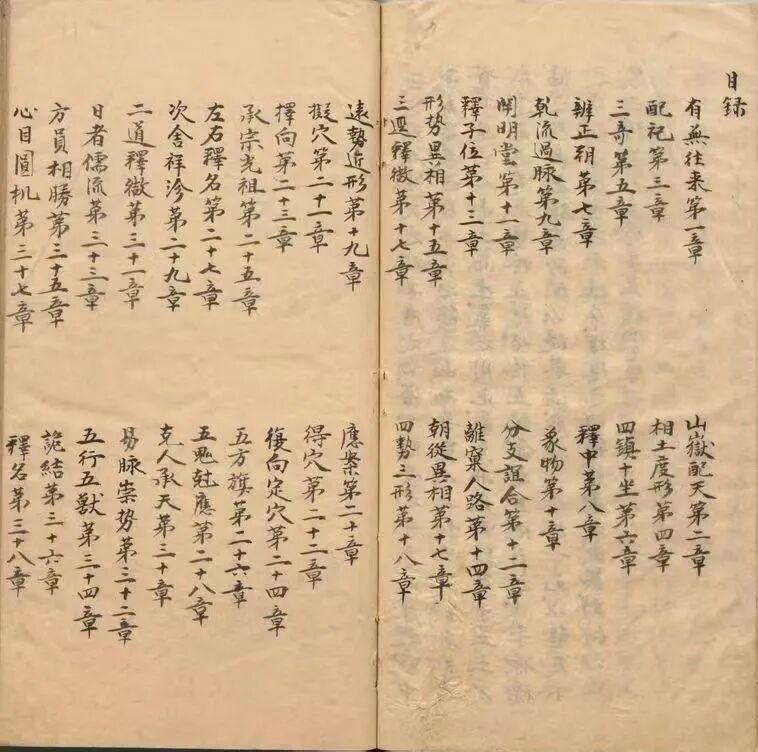 目録
有無往来第一章
山嶽配天第二章
配祀第三章
相土度形第四章
三奇第五章
四鎮十坐第六章
辨正朝第七章
釋中第八章
乾流過脉第九章
象物第十章
開明堂第十一章
分支誼合第十二章
釋子位第十三章
離窠入路第十四章
形势異相第十五章
朝從異相第十七章
三逕釋微第十七章
四势三形第十八章
遠势近形第十九章
應案第二十章
擬穴第二十一章
得穴第二十二章
擇向第二十三章
復向定穴第二十四章
承宗光祖第二十五章
五方旗第二十六章
左右釋名第二十七章
五鬼尅應第二十八章
次舍祥沴第二十九章
克人承天第三十章
二道釋微第三十一章
易脉崇势第三十二章
日者儒流第三十三章
五行五獸第三十四章
方員相勝第三十五章
詭結第三十六章
心目圓机第三十七章
釋名第三十八章